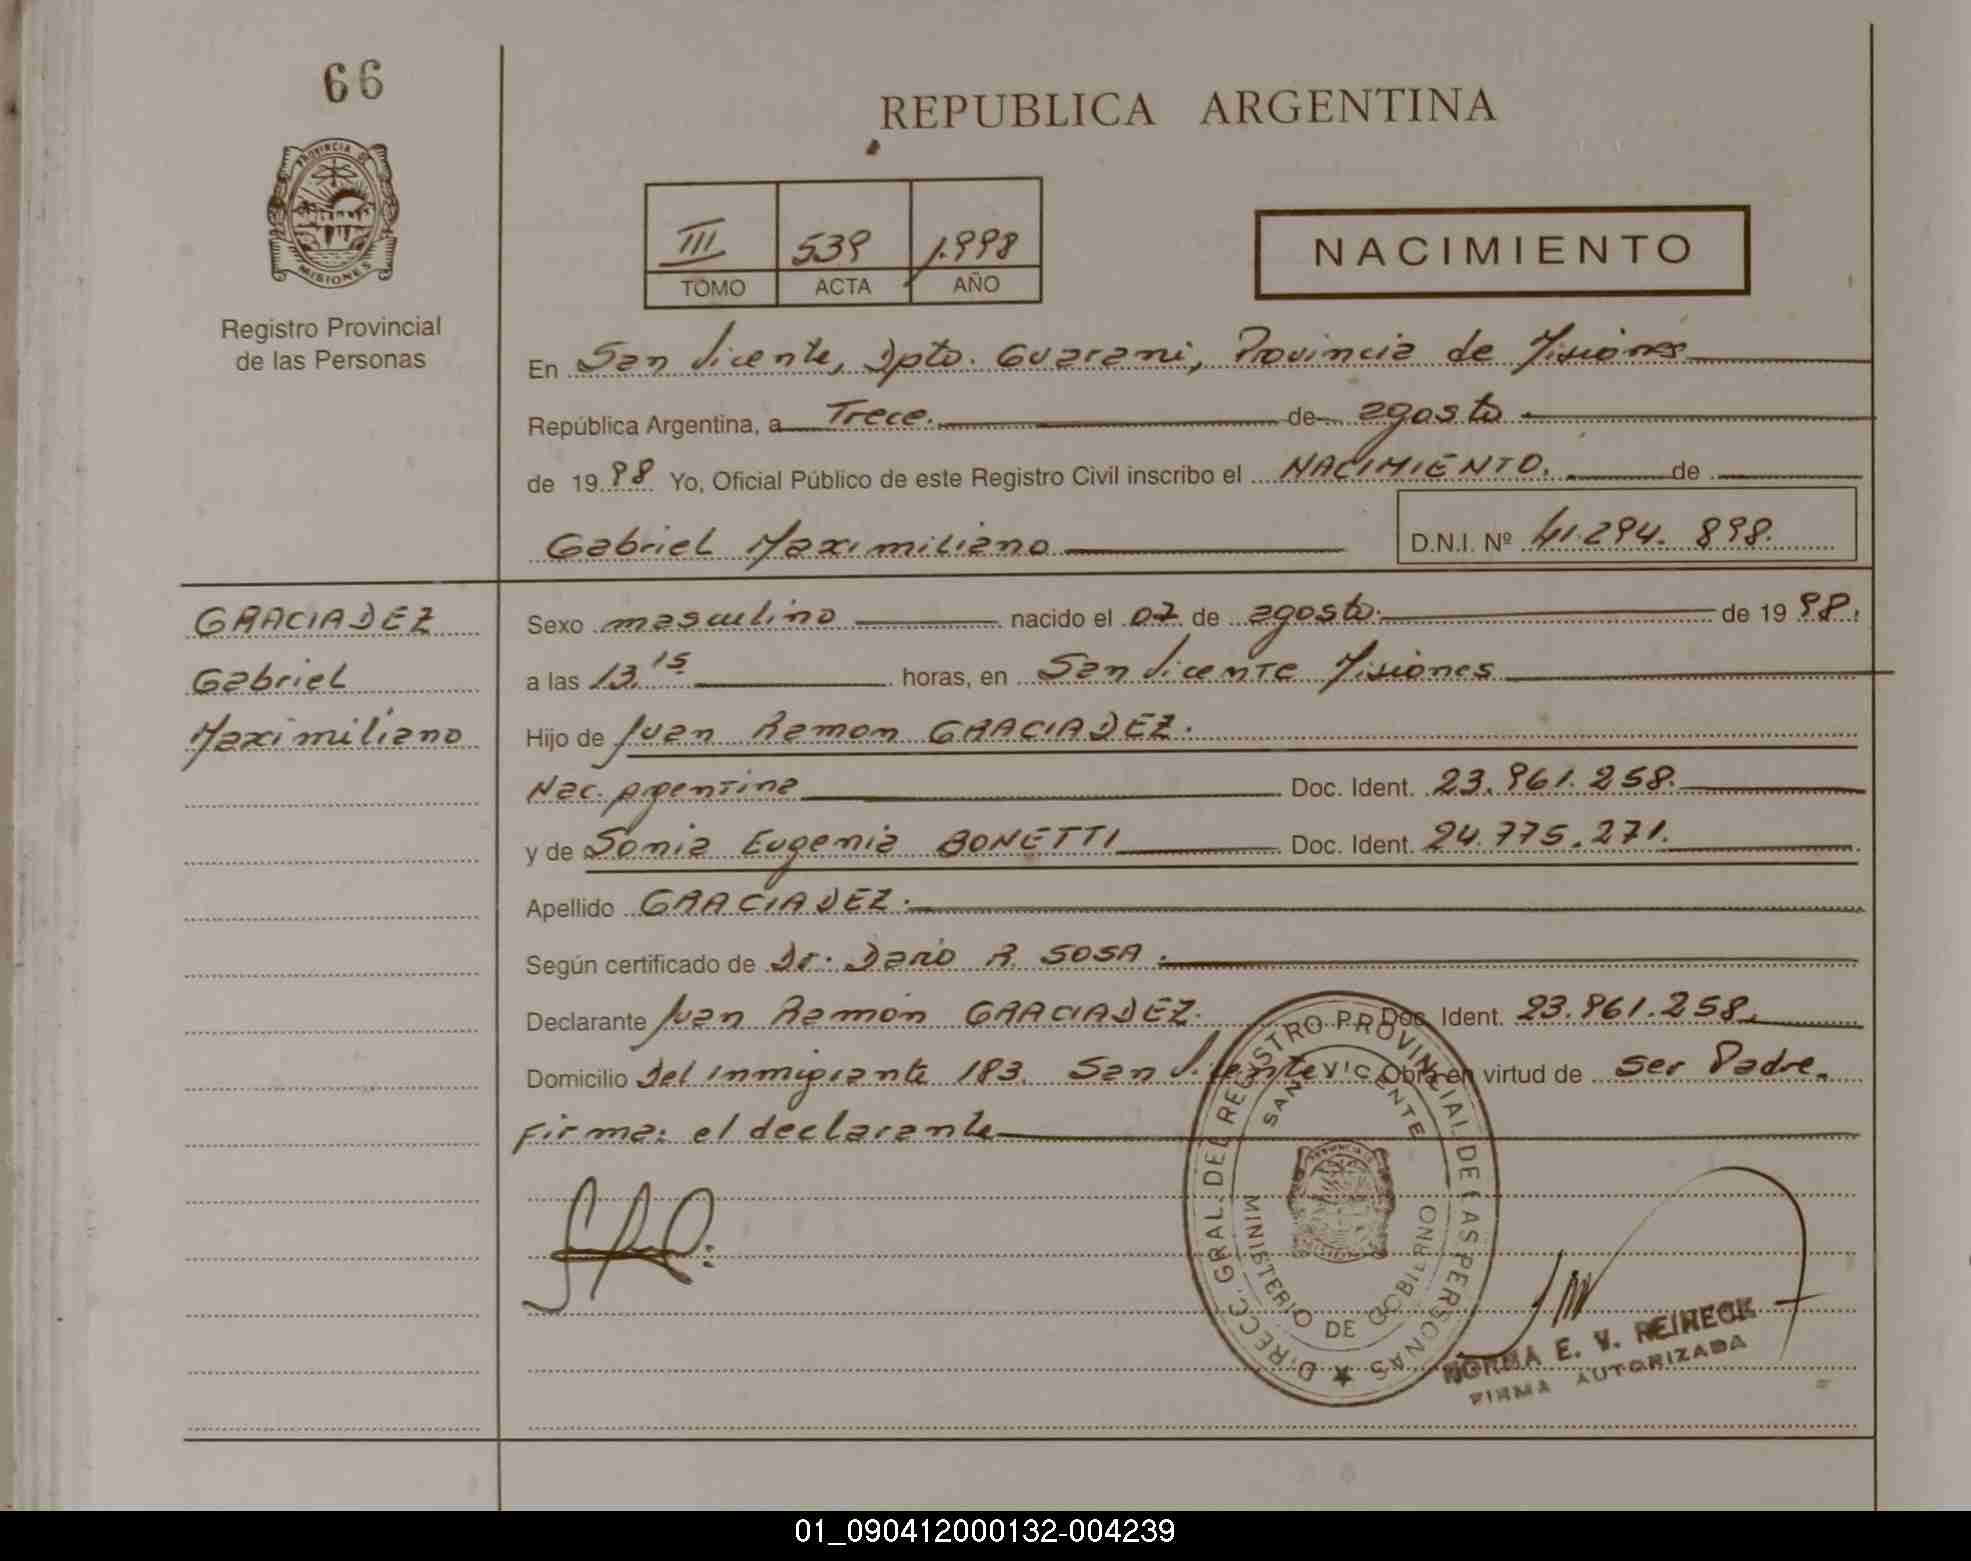 66
REPUBLICA ARGENTINA
PROVINCIA DE
MISIONES
Registro Provincial
de las Personas
III 539 1.998
TOMO ACTA AÑO
NACIMIENTO
En San Vicente, Dpto. Guarani, Provincia de Misiones
República Argentina, a Trece. de agosto
de 1998 Yo, Oficial Público de este Registro Civil inscribo el NACIMIENTO. de
Gabriel Maximiliano
D.N.I. Nº 41.294.898.
GRACIADEZ
Gabriel
Maximiliano
Sexo masculino nacido el 07 de agosto. de 1998.
a las 13.15 horas, en San Vicente Misiones
Hijo de Juan Ramon GRACIADEZ.
Nac. Argentina Doc. Ident. 23.961.258.
y de Sonia Eugenia BONETTI Doc. Ident. 24.775.271.
Apellido GRACIADEZ.
Según certificado de Dr. Dario R. SOSA.
Declarante Juan Ramón GRACIADEZ. Doc. Ident. 23.961.258.
Domicilio Del inmigrante 183. San Vicente Obra en virtud de ser Padre.
Firma: el declarante
DIRECC. GRAL. DEL REGISTRO PROVINCIAL DE LAS PERSONAS
SAN VICENTE
MINISTERIO DE GOBIERNO
NORMA E. V. REINECK
FIRMA AUTORIZADA
01_090412000132-004239